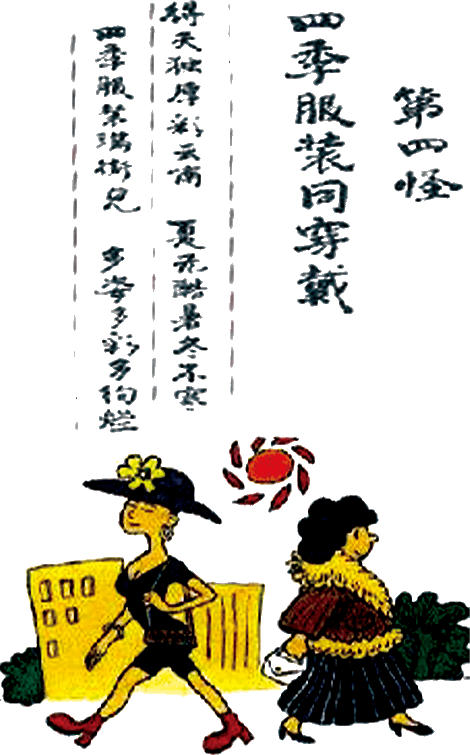 第四怪
四季服装同穿戴
得天独厚彩云南 夏无酷暑冬不寒
四季服装满街见 多姿多彩多绚烂